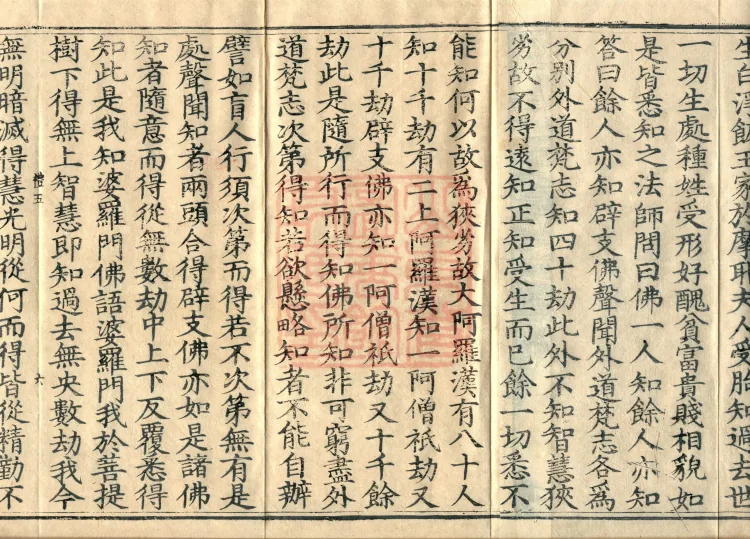 生白淨飯王家於摩耶夫人受胎知過去世
一切生處種姓受形好醜貧富貴賤相貌如
是皆悉知之法師問曰佛一人知餘人亦知
答曰餘人亦知辟支佛聲聞外道梵志各爲
分別外道梵志知四十劫此外不知智慧狹
劣故不得遠知正知受生而已餘一切悉不
能知何以故爲狹劣故大阿羅漢有八十人
知十千劫有二上阿羅漢知一阿僧祇劫又
十千劫辟支佛亦知一阿僧祇劫又十千餘
劫此是隨所行而得知佛所知非可窮盡外
道梵志次第得知若欲懸略知者不能自辦
譬如盲人行須次第而得若不次第無有是
處聲聞知者兩頭合得辟支佛亦如是諸佛
知者隨意而得從無數劫中上下反覆悉得
知此是我知婆羅門佛語婆羅門我於菩提
樹下得無上智慧即知過去無央數劫我今
禮五 六
無明暗滅得慧光明從何而得皆從精勤不